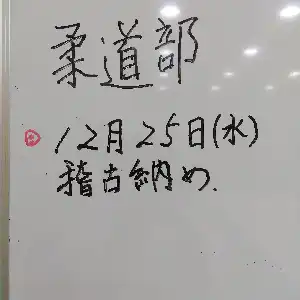 柔道部
◎12月25日(水)
稽古納め.